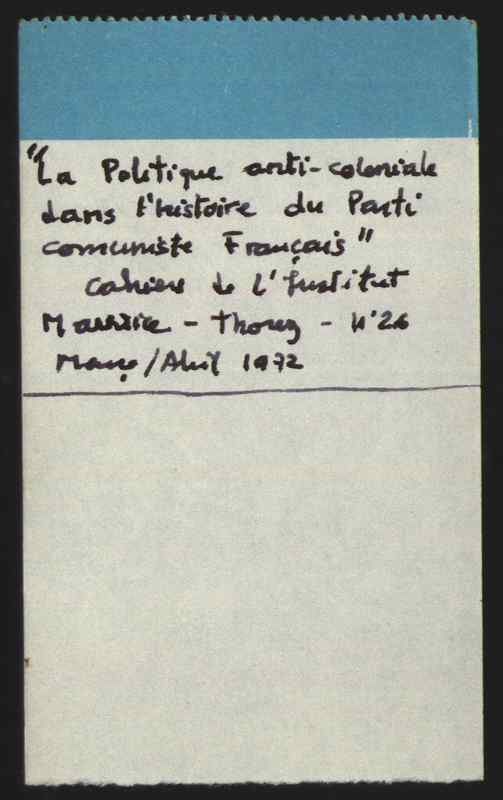 "La Politique anti-coloniale
dans l'histoire du Parti
comuniste Français"
Cahiers de L'Institut
Maurice - Thorez - Nº26
Março/Abril 1972